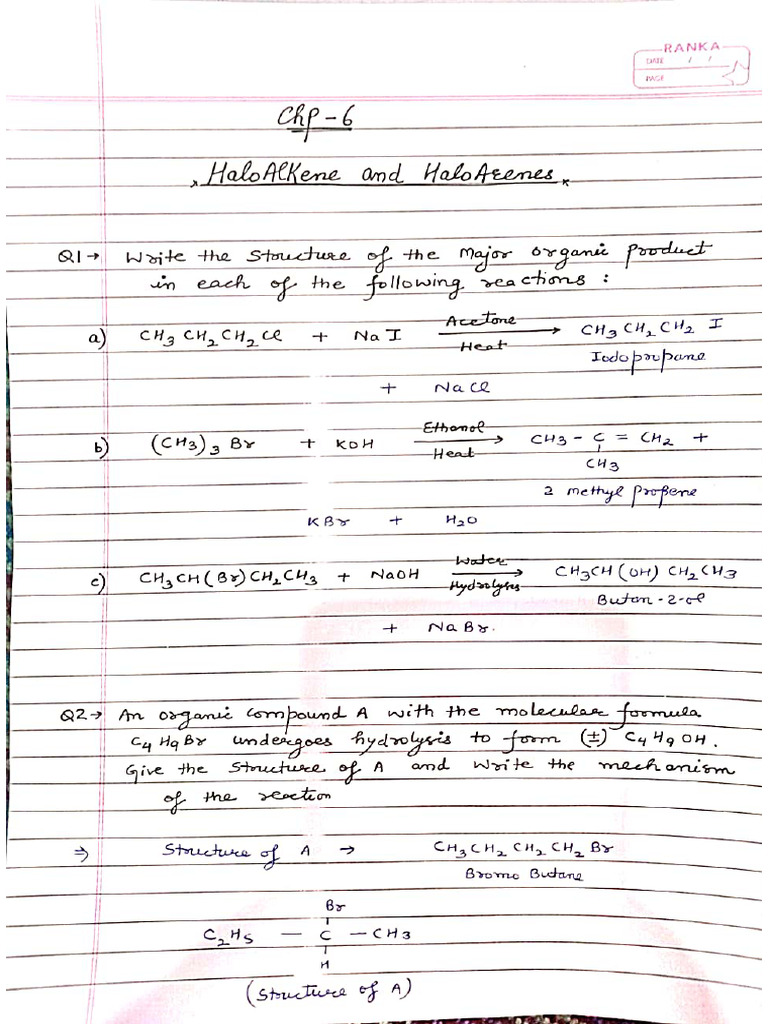 RANKA
DATE / /
PAGE
Chp - 6
HaloAlKene and HaloArenes
Q1 → Write the Structure of the Major organic product
in each of the following reactions :
a) CH3 CH2 CH2 Cl + Na I Acetone Heat → CH3 CH2 CH2 I
Iodopropane
+ NaCl
b) (CH3)3 Br + KOH Ethanol Heat → CH3 - C = CH2 +
CH3
2 methyl propene
KBr + H2O
c) CH3CH(Br)CH2CH3 + NaOH Water Hydrolysis → CH3CH(OH) CH2CH3
Butan-2-ol
+ NaBr.
Q2 → An organic Compound A with the molecular foomula
C4 H9 Br undergoes hydrolysis to form (±) C4 H9 OH.
Give the Structure of A and Write the mechanism
of the reaction
⇒ Structure of A → CH3CH2 CH2 CH2 Br
Bromo Butane
Br
C2H5 — C — CH3
H
(Structure of A)